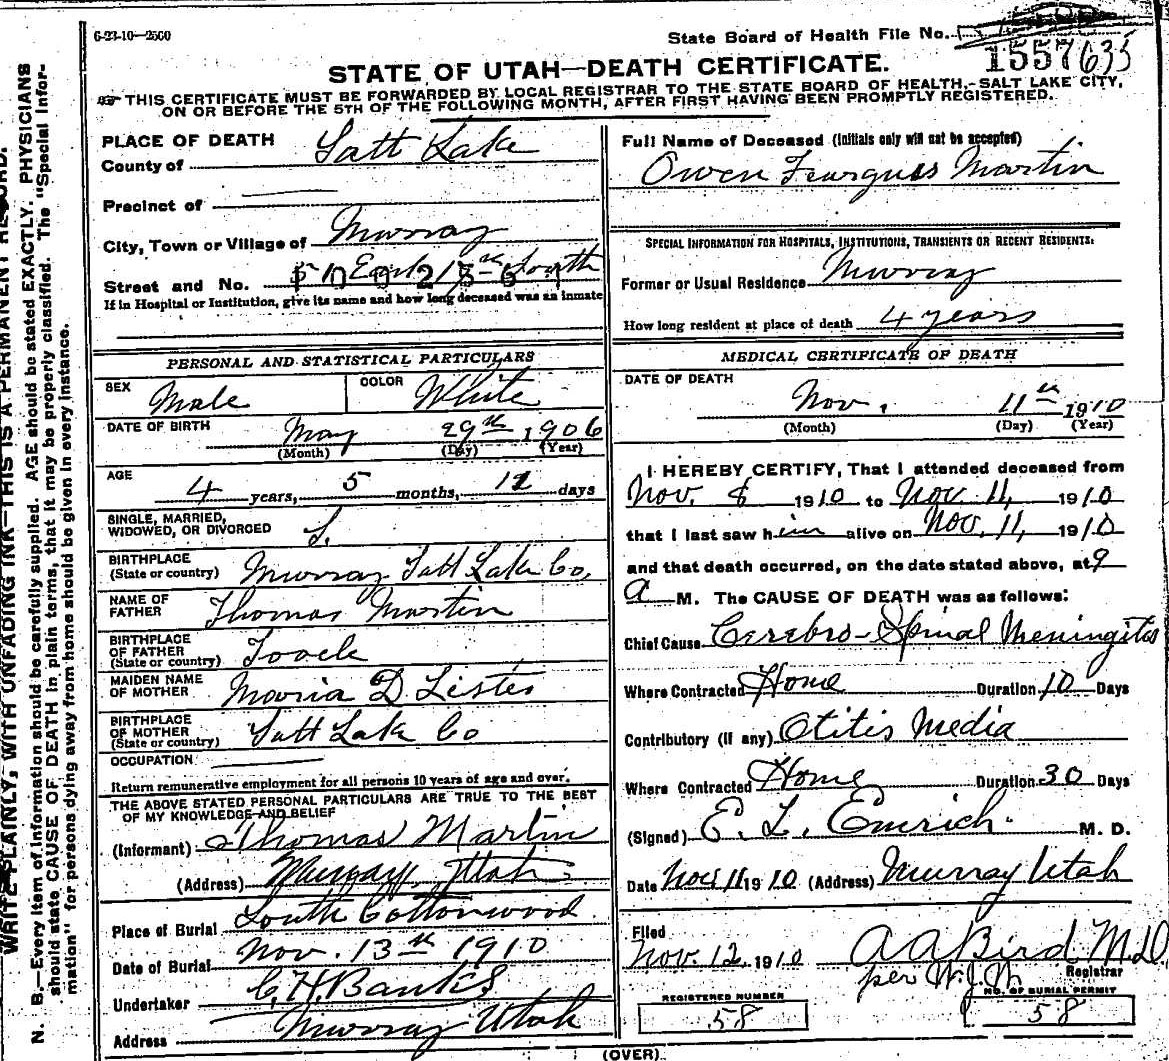 6-23-10—2500
State Board of Health File No.
1557635
STATE OF UTAH—DEATH CERTIFICATE.
THIS CERTIFICATE MUST BE FORWARDED BY LOCAL REGISTRAR TO THE STATE BOARD OF HEALTH, SALT LAKE CITY,
ON OR BEFORE THE 5TH OF THE FOLLOWING MONTH, AFTER FIRST HAVING BEEN PROMPTLY REGISTERED.
WRITE PLAINLY, WITH UNFADING INK—THIS IS A PERMANENT RECORD.
N. B.—Every item of information should be carefully supplied. AGE should be stated EXACTLY. PHYSICIANS
should state CAUSE OF DEATH in plain terms, that it may be properly classified. The "Special Infor-
mation" for persons dying away from home should be given in every instance.
PLACE OF DEATH
County of Salt Lake
Precinct of
City, Town or Village of Murray
Street and No. South
If in Hospital or Institution, give its name and how long deceased was an inmate
PERSONAL AND STATISTICAL PARTICULARS
SEX Male COLOR White
DATE OF BIRTH May 29th 1906
(Month) (Day) (Year)
AGE 4 years, 5 months, 12 days
SINGLE, MARRIED,
WIDOWED, OR DIVORCED S.
BIRTHPLACE
(State or country) Murray Salt Lake Co.
NAME OF
FATHER Thomas Martin
BIRTHPLACE
OF FATHER
(State or country) Tooele
MAIDEN NAME
OF MOTHER Maria D Lister
BIRTHPLACE
OF MOTHER
(State or country) Salt Lake Co
OCCUPATION
Return remunerative employment for all persons 10 years of age and over.
THE ABOVE STATED PERSONAL PARTICULARS ARE TRUE TO THE BEST
OF MY KNOWLEDGE AND BELIEF
(Informant) Thomas Martin
(Address) Murray, Utah
Place of Burial South Cottonwood
Date of Burial Nov. 13th 1910
Undertaker C. H. Banks
Address Murray Utah
Full Name of Deceased (Initials only will not be accepted)
Owen Feargues Martin
SPECIAL INFORMATION FOR HOSPITALS, INSTITUTIONS, TRANSIENTS OR RECENT RESIDENTS:
Former or Usual Residence Murray
How long resident at place of death 4 years
MEDICAL CERTIFICATE OF DEATH
DATE OF DEATH
Nov. 11th 1910
(Month) (Day) (Year)
I HEREBY CERTIFY, That I attended deceased from
Nov. 8 1910 to Nov 11, 1910
that I last saw him alive on Nov. 11, 1910
and that death occurred, on the date stated above, at 9
a M. The CAUSE OF DEATH was as follows:
Chief Cause Cerebro-Spinal Meningitis
Where Contracted Home Duration 10 Days
Contributory (if any) Otitis Media
Where Contracted Home Duration 30 Days
(Signed) E. L. Emrich M. D.
Date Nov 11 1910 (Address) Murray Utah
Filed
Nov. 12, 1910 A A Bird M.D.
per W. J. W. Registrar
REGISTERED NUMBER NO. OF BURIAL PERMIT
58 58
(OVER)